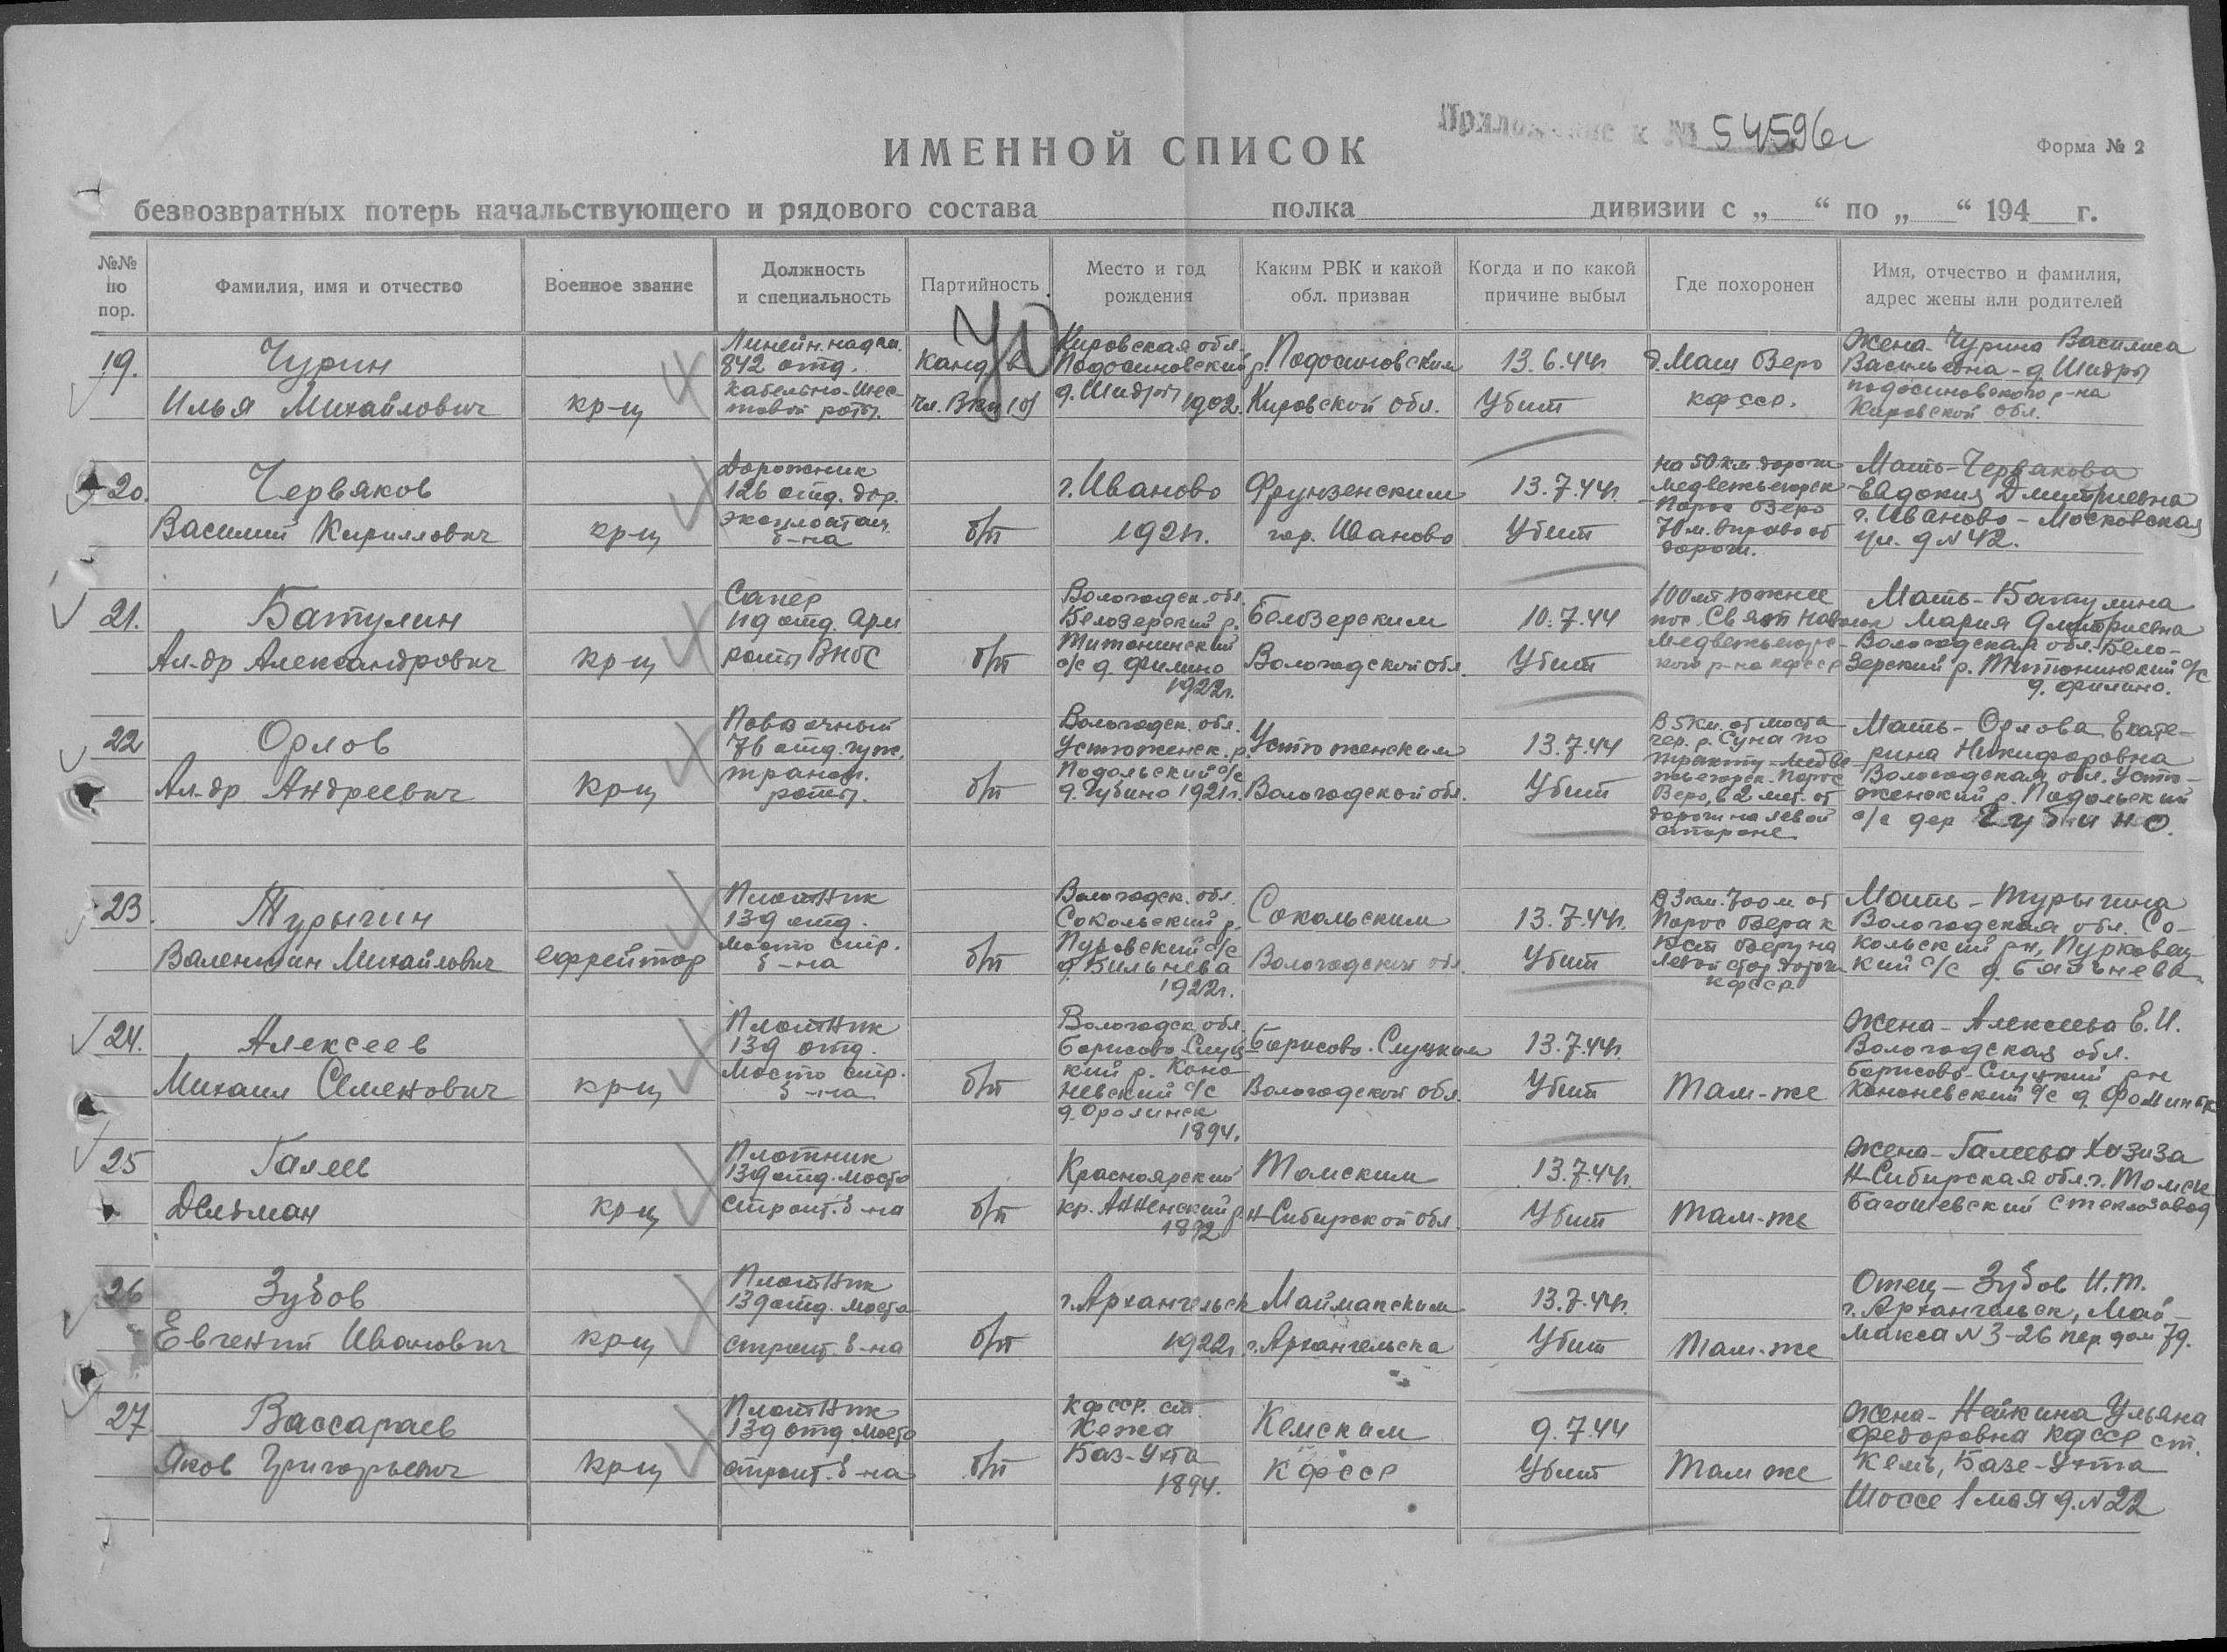 Приложение к № 54596с
ИМЕННОЙ СПИСОК
Форма № 2
безвозвратных потерь начальствующего и рядового состава полка дивизии с „ “ по „ “ 194 г.
№№ по пор.
Фамилия, имя и отчество
Военное звание
Должность и специальность
Партийность
Место и год рождения
Каким РВК и какой обл. призван
Когда и по какой причине выбыл
Где похоронен
Имя, отчество и фамилия, адрес жены или родителей
19.
Чурин
Илья Михайлович
кр-ц
Линейн. надсм.
842 отд.
кабельно-шес-
товой роты.
Канд. в
чл. ВКП(б)
Кировская обл.
Подосиновский р.
д. Шидры 1902.
Подосиновским
Кировской обл.
13.6.44г.
Убит
д. Маш Озеро
КФССР.
Жена-Чурина Василиса
Васильевна-д. Шидры
Подосиновского р-на
Кировской обл.
20.
Червяков
Василий Кириллович
кр-ц
Дорожник
126 отд. дор.
эксплоатац.
б-на
б/п
г. Иваново
1921г.
Фрунзенским
гор. Иваново
13.7.44г.
Убит
На 50 км. дороги
Медвежьегорск
-Порос Озеро
70 м. вправо от
дороги.
Мать-Червякова
Евдокия Дмитриевна
г. Иваново-Московская
ул. д N 42.
21.
Батулин
Ал-др Александрович
кр-ц
Сапер
119 отд. Арм
роты ВНОС
б/п
Вологодск. обл.
Белозерский р.
Титонинский
с/с д. Филино
1922г.
Белозерским
Вологодской обл.
10.7.44
Убит
100 мт южнее
пос. Свят Наволок
Медвежьегорс-
кого р-на КФССР
Мать-Батулина
Мария Дмитриевна
Вологодская обл. Бело-
зерский р. Титонинский с/с
д. Филино.
22
Орлов
Ал-др Андреевич
кр-ц
Повозочный
76 отд. гуж.
трансп.
роты.
б/п
Вологодск. обл.
Устюженск. р.
Подольский с/с
д. Губино 1921г.
Устюженским
Вологодской обл.
13.7.44
Убит
В 5 км. от моста
чер. р. Суна по
тракту-Медве
жьегорск. Порос
Озеро, в 2 мет. от
дороги на левой
стороне
Мать-Орлова Екате-
рина Никифоровна
Вологодская обл. Устю-
женский р. Подольский
с/с дер Губино.
23.
Турыгин
Валентин Михайлович
ефрейтор
Плотник
139 отд.
мосто стр.
б-на
б/п
Вологодск. обл.
Сокольский р.
Пурковский с/с
д. Бильнева
1922г.
Сокольским
Вологодской обл.
13.7.44г.
Убит
В 3 км. 700 м от
Порос Озера к
Куст Озеру на
левой стор. дороги
КФССР
Мать-Турыгина
Вологодская обл. Со-
кольский рн, Пурковец-
кий с/с д. Бяльнева
24.
Алексеев
Михаил Семенович
кр-ц
Плотник
139 отд.
Мосто стр.
б-на
б/п
Вологодск обл.
Борисово-Слуц-
кий р. Коно
невский с/с
1894.
Борисово-Слуцким
Вологодской обл.
13.7.44г.
Убит
Там-же
Жена-Алексеева Е.И.
Вологодская обл.
Борисово-Слуцкий рн
Кононевский с/с д. Фоминск
25
Галеев
Девлман
кр-ц
Плотник
139 отд. мосто
строит. б-на
б/п
Красноярский
кр. Анненский р.
1892
Томским
Н-Сибирской обл.
13.7.44г.
Убит
Там-же
Жена-Галеева Хазиза
Н-Сибирская обл. г. Томск
Багошевский стеклозавод
26
Зубов
Евгений Иванович
кр-ц
Плотник
139 отд. мосто
строит. б-на
б/п
г. Архангельск
1922г.
Маймакским
г. Архангельска
13.7.44г.
Убит
Там-же
Отец-Зубов И.Т.
г. Архангельск, Май-
макса N 3-26 пер. дом 79.
27
Вассараев
Яков Григорьевич
кр-ц
Плотник
139 отд мосто
строит. б-на
б/п
КФССР. ст.
Баз-Ухта
1894.
Кемским
КФССР
9.7.44
Убит
Там же
Жена-Нейкина Ульяна
Федоровна КФССР ст.
Кемь, Базе-Ухта
Шоссе 1 мая д. N 22